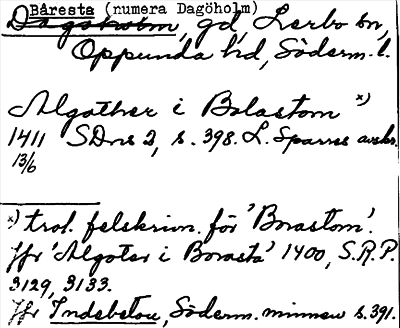 Båresta (numera Dagöholm)
Dagsholm, gd, Lerbo sn,
Oppunda hd, Söderm. l.
Algother i Bolastom x)
1411 SDns 2, s. 398. L. Sparres avskr.
13/6
x) trol. felskrivn. för 'Borastom'.
Jfr 'Algoter i Borasta' 1400, S.R.P.
3129, 3133.
Jfr Indebetou, Söderm. minnen s. 391.